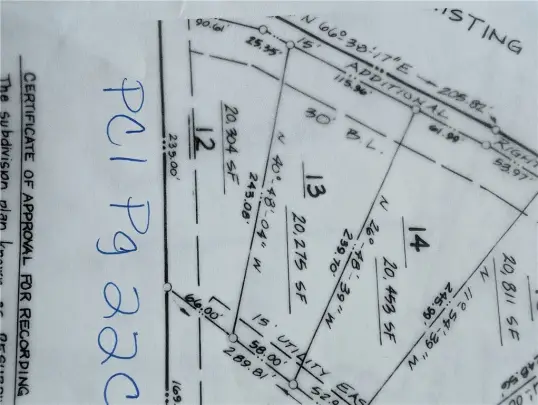 N 66°38'17"E
205.82'
EXISTING
90.61'
25.35'
15'
ADDITIONAL
115.96'
RIGHT
61.99
53.97'
30' B.L.
12
20,304 SF
235.00'
N 40°48'04" W
243.08'
13
20,275 SF
N 26°48'39" W
239.70'
14
20,453 SF
N 11°54'39" W
245.99'
20,811 SF
66.00'
15' UTILITY EAS
58.00'
289.81'
52.9
169.
PC1 Pg 220
CERTIFICATE OF APPROVAL FOR RECORDING
The subdivision plan known as